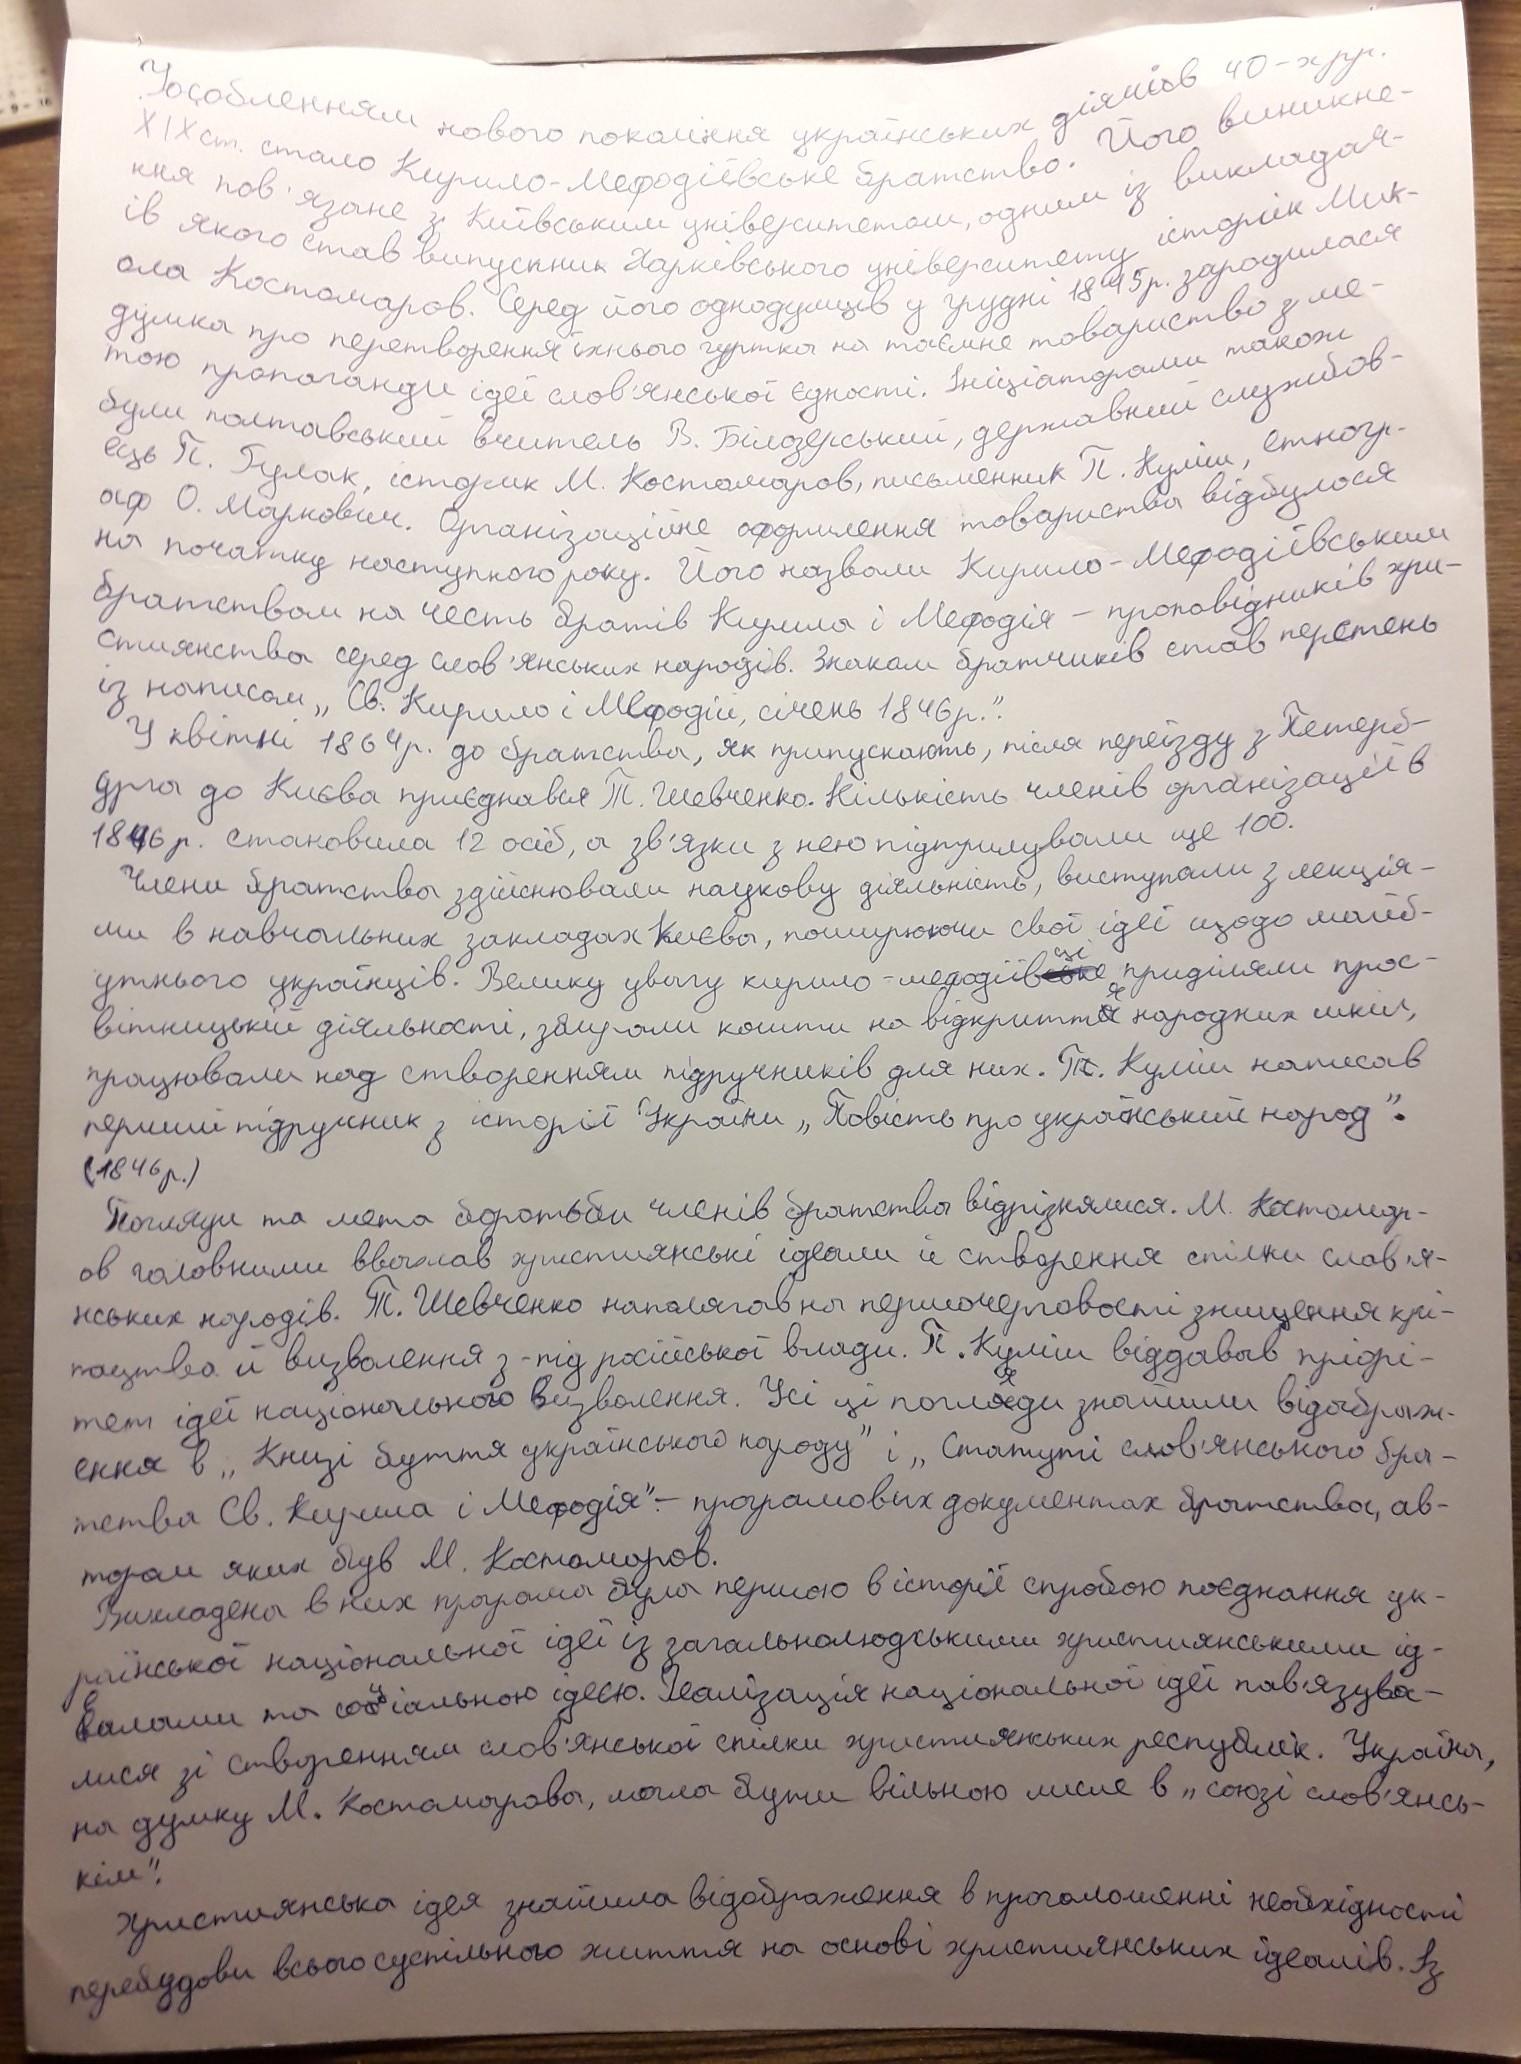 Уособленням нового покоління українських діячів 40-х рр.
XIX ст. стало Кирило-Мефодіївське братство. Його виникне-
ння пов'язане з Київським університетом, одним із викладач-
ів якого став випускник Харківського університету історик Мик-
ола Костомаров. Серед його однодумців у грудні 1845р. зародилася
думка про перетворення їхнього гуртка на таємне товариство з ме-
тою пропаганди ідеї слов'янської єдності. Ініціаторами також
були полтавський вчитель В. Білозерський, державний службов-
ець П. Гулак, історик М. Костомаров, письменник П. Куліш, етногр-
аф О. Маркович. Організаційне оформлення товариства відбулося
на початку наступного року. Його назвали Кирило-Мефодіївським
братством на честь братів Кирила і Мефодія – проповідників хри-
стиянства серед слов'янських народів. Знаком братчиків став перстень
із написом „Св. Кирило і Мефодій, січень 1846р.".
У квітні 1864р. до братства, як припускають, після переїзду з Петерб-
урга до Києва приєднався Т. Шевченко. Кількість членів організації в
1846р. становила 12 осіб, а зв'язки з нею підтримували ще 100.
Члени братства здійснювали наукову діяльність, виступали з лекція-
ми в навчальних закладах Києва, поширюючи свої ідеї щодо майб-
утнього українців. Велику увагу кирило-мефодіївці приділяли прос-
вітницькій діяльності, збирали кошти на відкриття народних шкіл,
працювали над створенням підручників для них. П. Куліш написав
перший підручник з історії України „Повість про український народ".
(1846р.)
Погляди та мета боротьби членів братства відрізнялися. М. Костомар-
ов головними вважав християнські ідеали й створення спілки слов'я-
нських народів. Т. Шевченко наполягав на першочерговості знищення крі-
пацтва й визволення з-під російської влади. П. Куліш віддавав пріорі-
тет ідеї національного визволення. Усі ці погляди знайшли відображ-
ення в „Книзі буття українського народу" і „Статуті слов'янського бра-
тства Св. Кирила і Мефодія" – програмових документах братства, ав-
тором яких був М. Костомаров.
Викладена в них програма була першою в історії спробою поєднання ук-
раїнської національної ідеї із загальнолюдськими християнськими ід-
еалами та соціальною ідеєю. Реалізація національної ідеї пов'язува-
лися зі створенням слов'янської спілки християнських республік. Україна,
на думку М. Костомарова, мала бути вільною лише в „союзі слов'янсь-
кім".
Християнська ідея знайшла відображення в проголошенні необхідності
перебудови всього суспільного життя на основі християнських ідеалів. Із